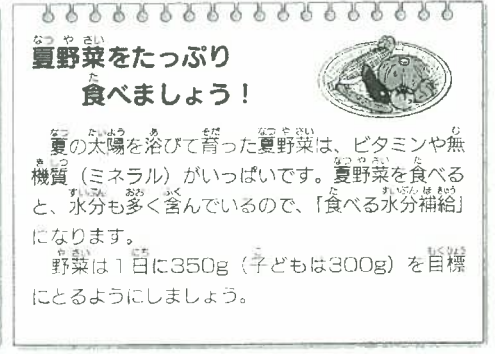 夏野菜をたっぷり
食べましょう！
夏の太陽を浴びて育った夏野菜は、ビタミンや無
機質（ミネラル）がいっぱいです。夏野菜を食べる
と、水分も多く含んでいるので、「食べる水分補給」
になります。
野菜は１日に350g（子どもは300g）を目標
にとるようにしましょう。